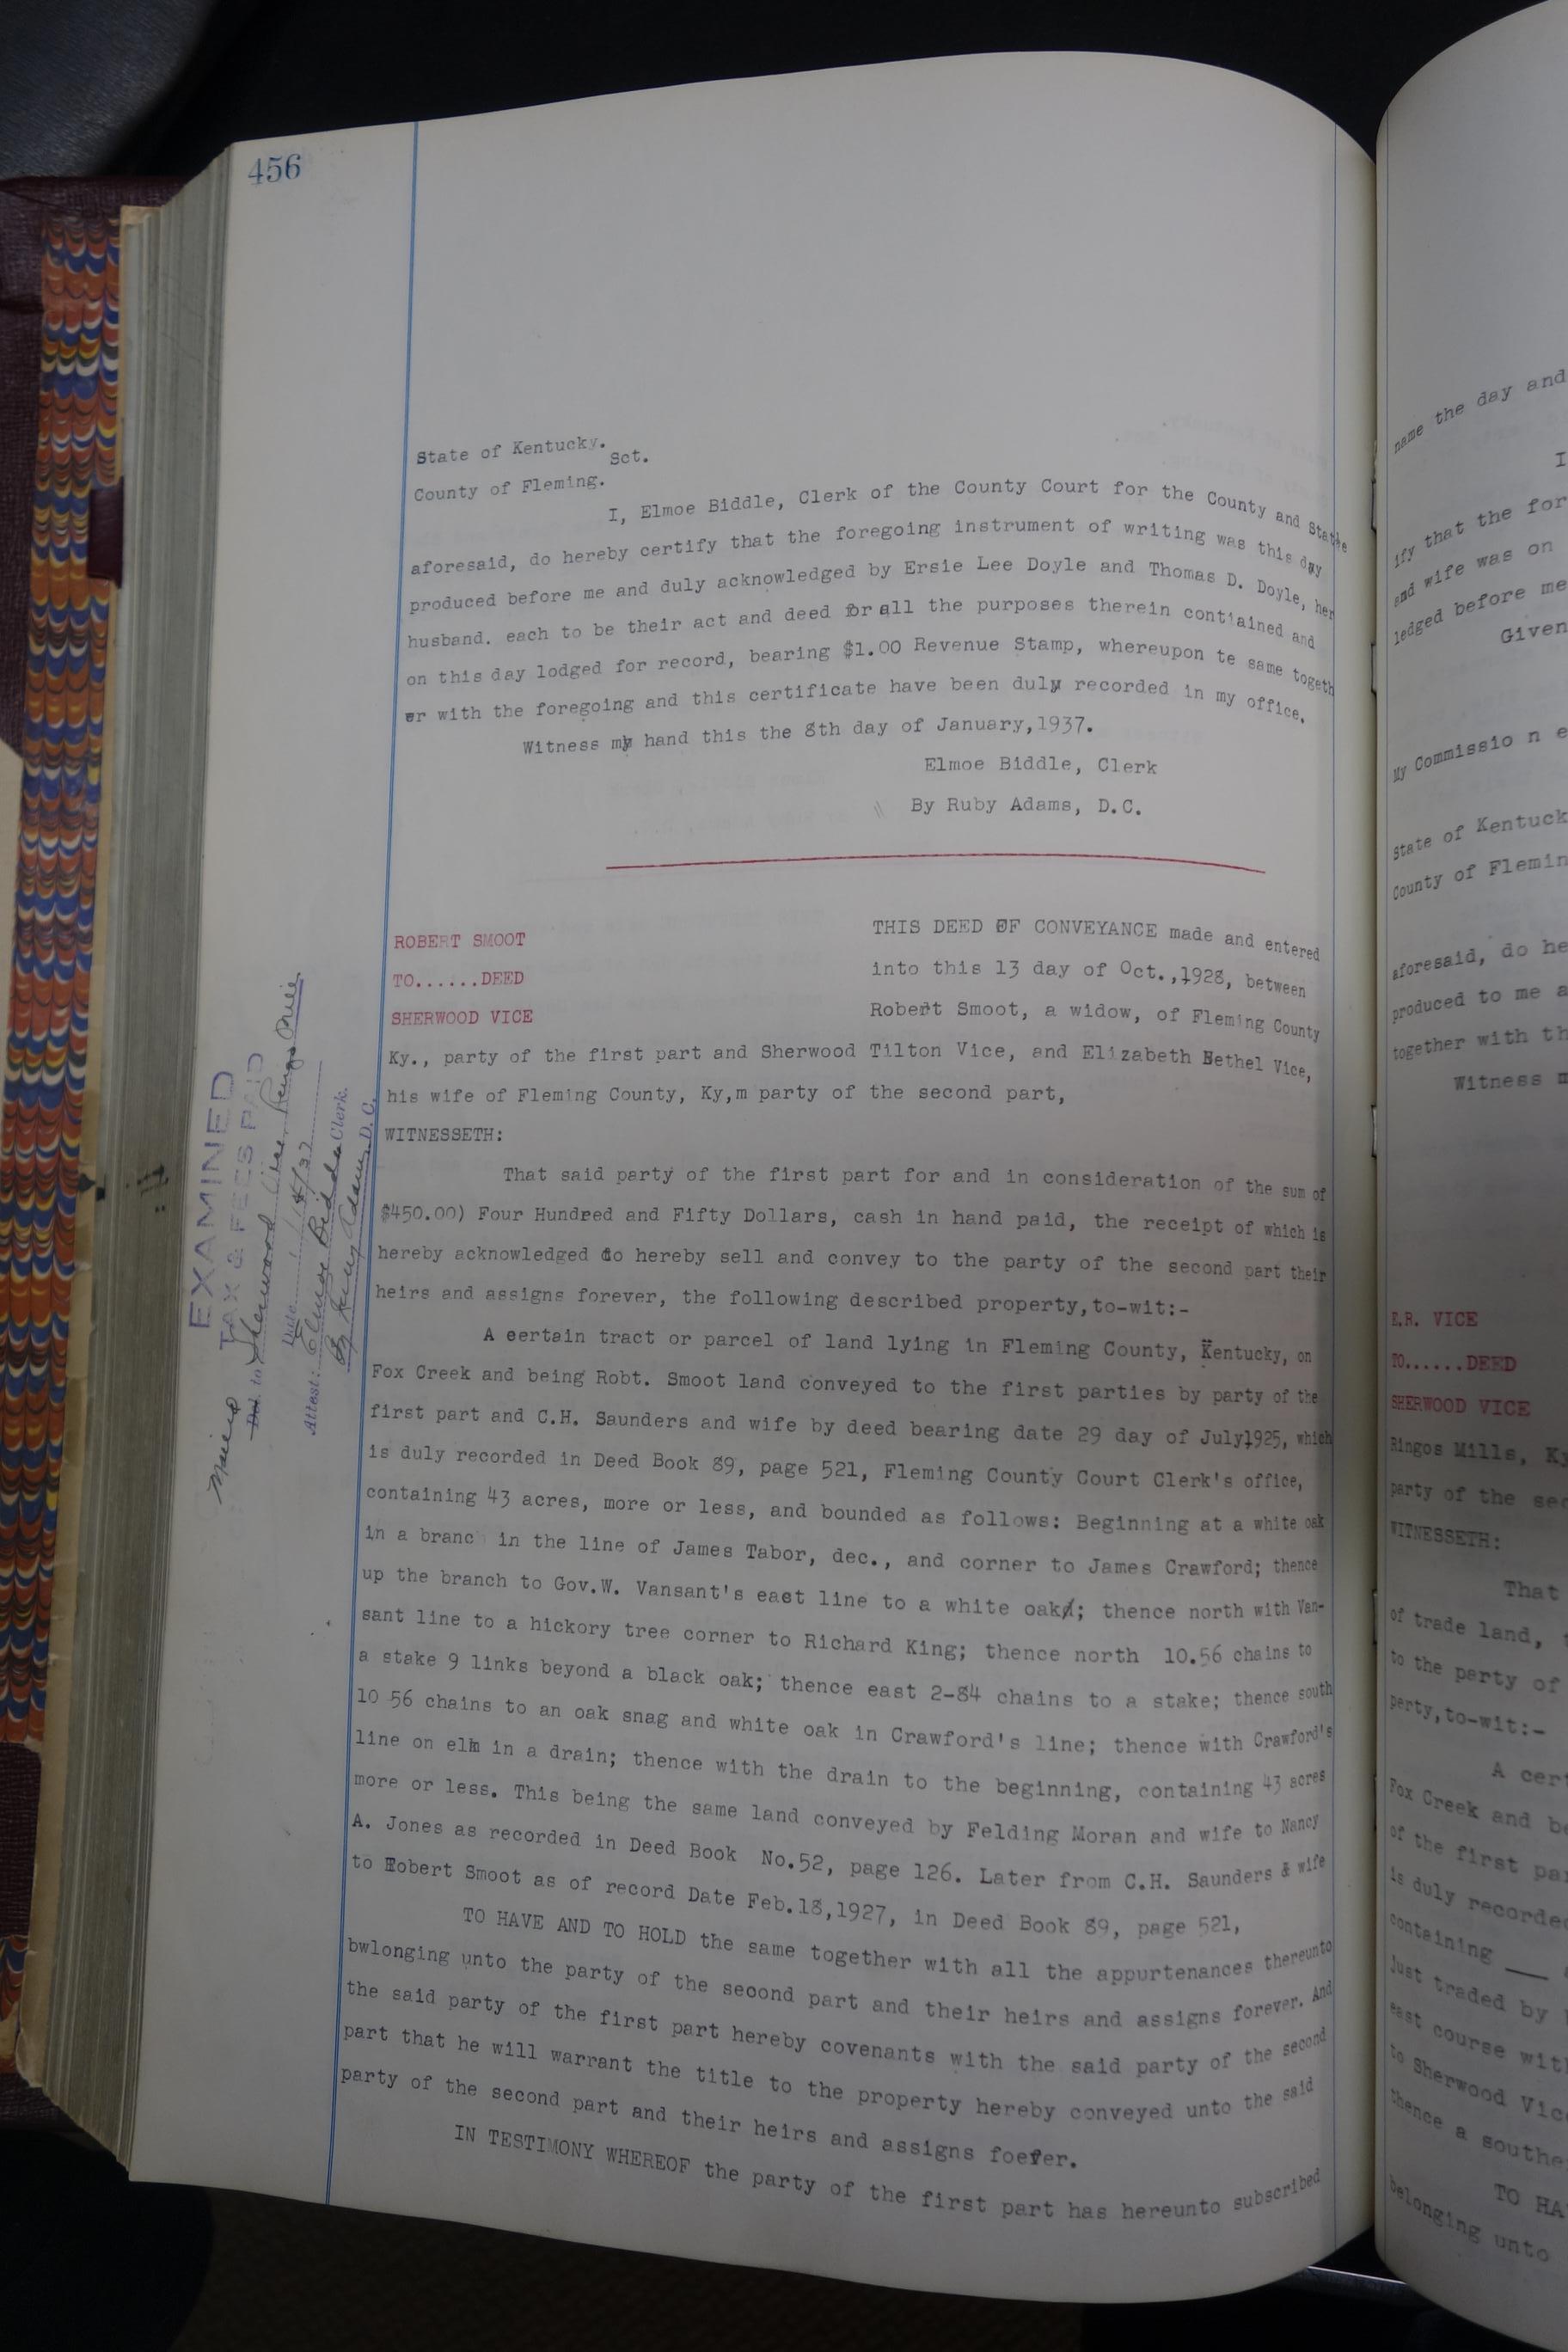 456
State of Kentucky.
Sct.
County of Fleming.
I, Elmoe Biddle, Clerk of the County Court for the County and State
aforesaid, do hereby certify that the foregoing instrument of writing was this day
produced before me and duly acknowledged by Ersie Lee Doyle and Thomas D. Doyle, her
husband. each to be their act and deed for all the purposes therein contiained and
on this day lodged for record, bearing $1.00 Revenue Stamp, whereupon te same togeth
er with the foregoing and this certificate have been duly recorded in my office.
Witness my hand this the 8th day of January,1937.
Elmoe Biddle, Clerk
By Ruby Adams, D.C.
ROBERT SMOOT
TO......DEED
SHERWOOD VICE
THIS DEED OF CONVEYANCE made and entered
into this 13 day of Oct.,1928, between
Robert Smoot, a widow, of Fleming County
Ky., party of the first part and Sherwood Tilton Vice, and Elizabeth Bethel Vice,
his wife of Fleming County, Ky,m party of the second part,
WITNESSETH:
That said party of the first part for and in consideration of the sum of
$450.00) Four Hundred and Fifty Dollars, cash in hand paid, the receipt of which is
hereby acknowledged do hereby sell and convey to the party of the second part their
heirs and assigns forever, the following described property,to-wit:-
A certain tract or parcel of land lying in Fleming County, Kentucky, on
Fox Creek and being Robt. Smoot land conveyed to the first parties by party of the
first part and C.H. Saunders and wife by deed bearing date 29 day of July,1925, which
is duly recorded in Deed Book 89, page 521, Fleming County Court Clerk's office,
containing 43 acres, more or less, and bounded as follows: Beginning at a white oak
in a branc in the line of James Tabor, dec., and corner to James Crawford; thence
up the branch to Gov.W. Vansant's east line to a white oak; thence north with Van-
sant line to a hickory tree corner to Richard King; thence north 10.56 chains to
a stake 9 links beyond a black oak; thence east 2-84 chains to a stake; thence south
10 56 chains to an oak snag and white oak in Crawford's line; thence with Crawford's
line on elm in a drain; thence with the drain to the beginning, containing 43 acres
more or less. This being the same land conveyed by Felding Moran and wife to Nancy
A. Jones as recorded in Deed Book No.52, page 126. Later from C.H. Saunders & wife
to Robert Smoot as of record Date Feb.18,1927, in Deed Book 89, page 521,
TO HAVE AND TO HOLD the same together with all the appurtenances thereunto
bwlonging unto the party of the second part and their heirs and assigns forever. And
the said party of the first part hereby covenants with the said party of the second
part that he will warrant the title to the property hereby conveyed unto the said
party of the second part and their heirs and assigns foefer.
IN TESTIMONY WHEREOF the party of the first part has hereunto subscribed
EXAMINED
TAX & FEES PAID
Mailed
Del. to Sherwood Vice
Date
Attest: Elmoe Biddle Clerk.
By Ruby Adams D.C.
name the day and
I
ify that the for
and wife was on
ledged before me
Given
My Commissio n e
State of Kentuck
County of Flemin
aforesaid, do he
produced to me a
together with th
Witness m
E.R. VICE
TO......DEED
SHERWOOD VICE
Ringos Mills, Ky
party of the sec
WITNESSETH:
That
of trade land, t
to the party of
perty,to-wit:-
A cert
Fox Creek and be
of the first par
is duly recorded
containing ___
just traded by
east course with
to Sherwood Vice
thence a southe
TO HA
belonging unto